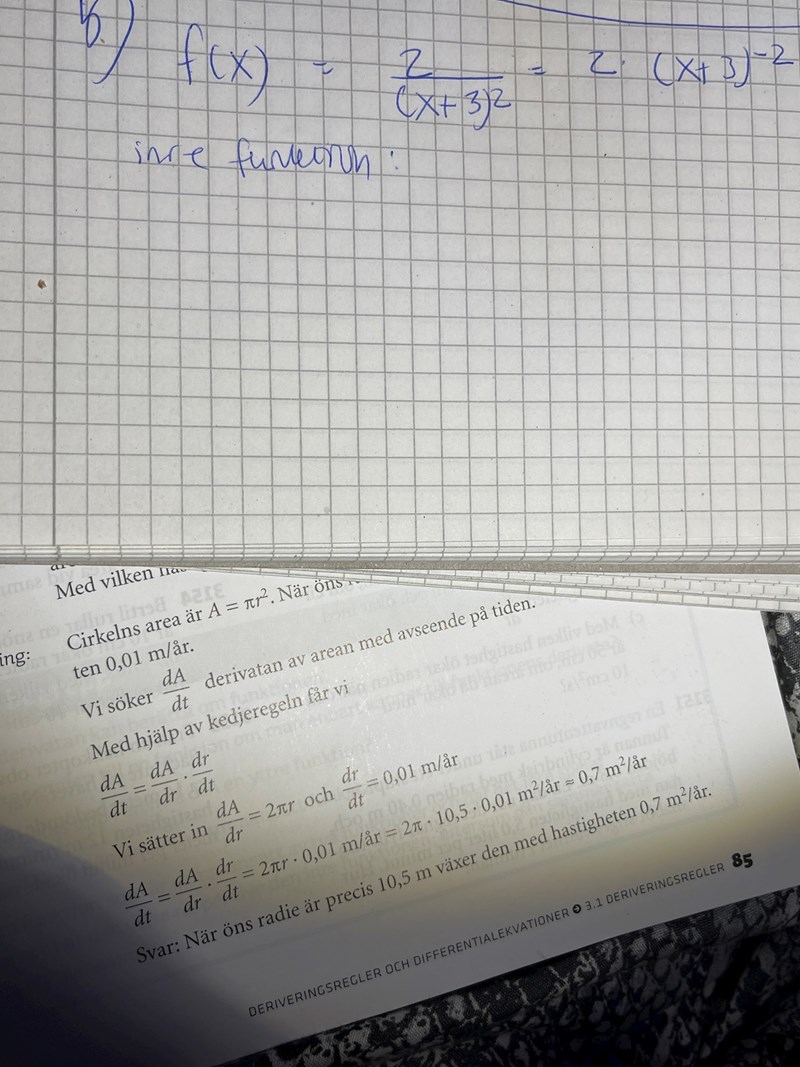 b.) f(x) = 2/(x+3)² = 2 · (x+3)⁻²
inre funktion:
Med vilken
Cirkelns area är A = πr². När öns
ing:
ten 0,01 m/år.
Vi söker dA/dt derivatan av arean med avseende på tiden.
Med hjälp av kedjeregeln får vi
dA/dt = dA/dr · dr/dt
Vi sätter in dA/dr = 2πr och dr/dt = 0,01 m/år
dA/dt = dA/dr · dr/dt = 2πr · 0,01 m/år = 2π · 10,5 · 0,01 m²/år ≈ 0,7 m²/år
Svar: När öns radie är precis 10,5 m växer den med hastigheten 0,7 m²/år.
DERIVERINGSREGLER OCH DIFFERENTIALEKVATIONER 3.1 DERIVERINGSREGLER 85